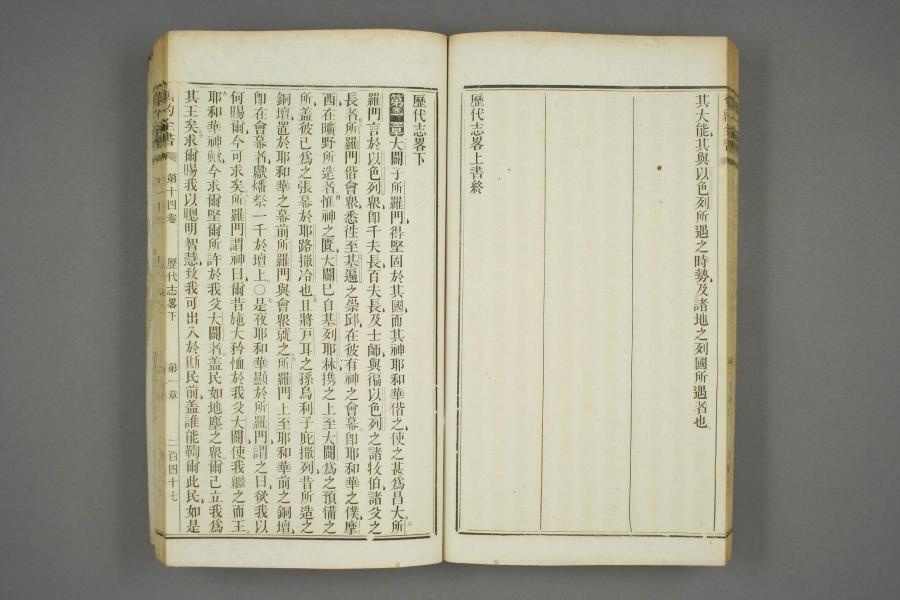 其大能其與以色列所遇之時勢及諸地之列國所遇者也
歷代志畧上書終
歷代志畧下
第一章大闢子所羅門得堅固於其國而其神耶和華偕之使之甚爲昌大所
羅門言於以色列衆卽千夫長百夫長及士師與徧以色列之諸牧伯諸父之
長者所羅門偕會衆悉徃至基遍之崇邱在彼有神之會幕卽耶和華之僕摩
西在曠野所造者惟神之匱大闢已自基列耶林攜之上至大闢爲之預備之
所蓋彼已爲之張幕於耶路撒冷也且將戸耳之孫烏利子庇撒列昔所造之
銅壇置於耶和華之幕前所羅門與會衆就之所羅門上至耶和華前之銅壇
卽在會幕者獻燔祭一千於壇上〇是夜耶和華顯於所羅門謂之曰欲我以
何賜爾今可求矣所羅門謂神曰爾昔施大矜恤於我父大闢使我繼之而王
耶和華神歟今求爾堅爾所許於我父大闢者蓋民如地塵之衆爾已立我爲
其王矣求爾賜我以聰明智慧致我可出入於斯民前蓋誰能鞫爾此民如是
第十四卷 歷代志畧下 第一章 二百四十七